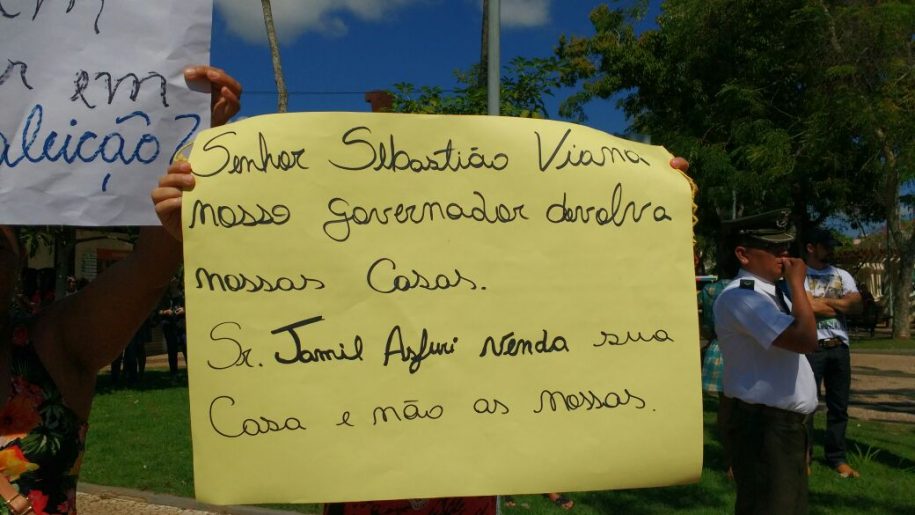 em
em
aleição?
Senhor Sebastião Viana
nosso governador devolva
nossas Casas.
Sr. Jamil Asfuri venda sua
Casa e não as nossas.